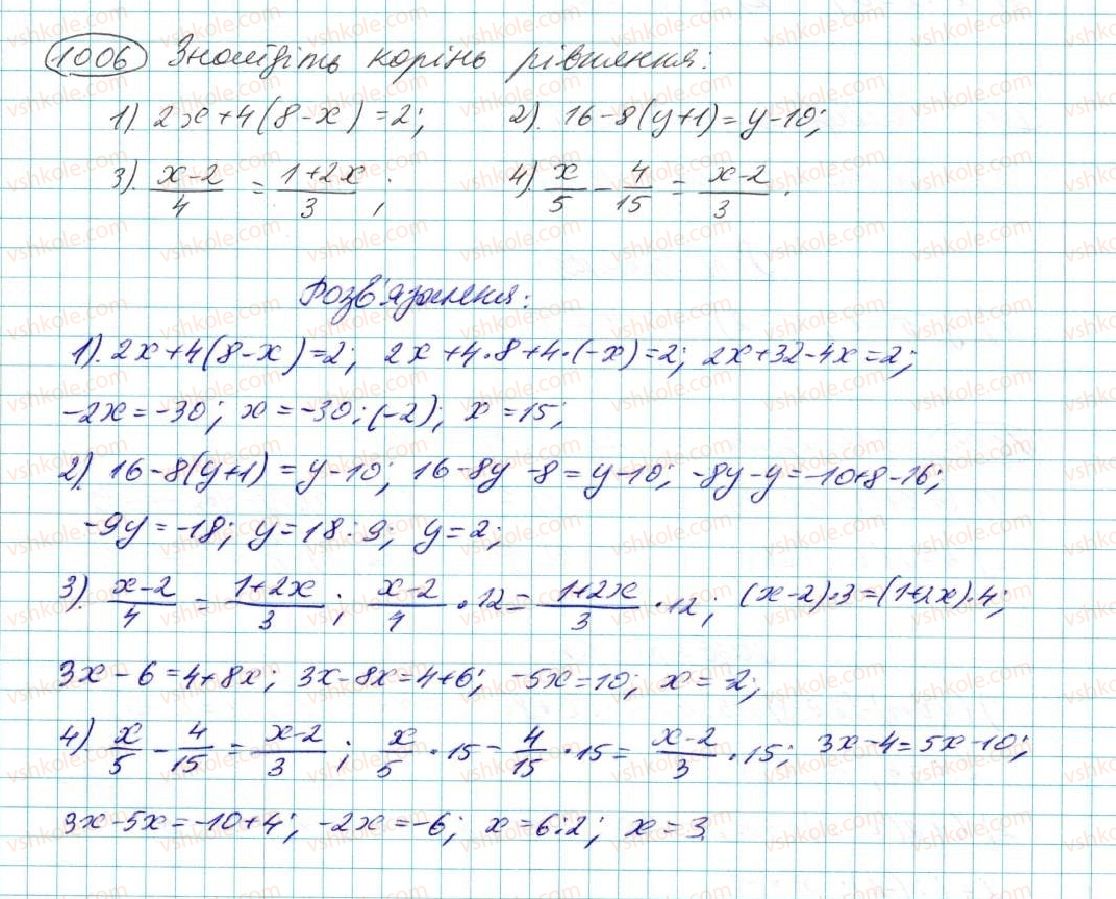 1006 Знайдіть корінь рівняння:
1) 2x+4(8-x)=2; 2). 16-8(y+1)=y-10;
3). (x-2)/4 = (1+2x)/3; 4) x/5 - 4/15 = (x-2)/3.
Розв'язання:
1). 2x+4(8-x)=2; 2x+4·8+4·(-x)=2; 2x+32-4x=2;
-2x=-30; x=-30:(-2); x=15;
2). 16-8(y+1)=y-10; 16-8y-8=y-10; -8y-y=-10+8-16;
-9y=-18; y=18:9; y=2;
3). (x-2)/4 = (1+2x)/3; (x-2)/4 · 12 = (1+2x)/3 · 12; (x-2)·3=(1+2x)·4;
3x-6=4+8x; 3x-8x=4+6; -5x=10; x=-2;
4). x/5 - 4/15 = (x-2)/3; x/5 · 15 - 4/15 · 15 = (x-2)/3 · 15; 3x-4=5x-10;
3x-5x=-10+4; -2x=-6; x=6:2; x=3